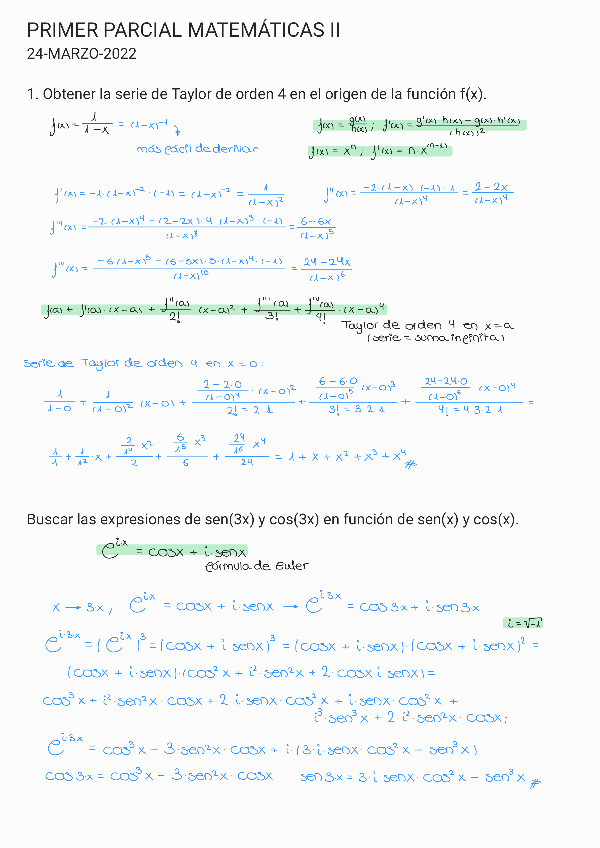 PRIMER PARCIAL MATEMÁTICAS II
24-MARZO-2022
1. Obtener la serie de Taylor de orden 4 en el origen de la función f(x).
f(x) = 1/(1-x) = (1-x)^-1
f(x) = g(x)/h(x) ; f'(x) = (g'(x)·h(x) - g(x)·h'(x))/(h(x))^2
más fácil de derivar
f(x) = x^n, f'(x) = n·x^(n-1)
f'(x) = -1·(1-x)^-2·(-1) = (1-x)^-2 = 1/(1-x)^2
f''(x) = (-2·(1-x)·(-1)·1)/(1-x)^4 = (2-2x)/(1-x)^4
f'''(x) = (-2·(1-x)^4 - (2-2x)·4·(1-x)^3·(-1))/(1-x)^8 = (6-6x)/(1-x)^5
f''''(x) = (-6(1-x)^5 - (6-6x)·5·(1-x)^4·(-1))/(1-x)^10 = (24-24x)/(1-x)^6
f(a) + f'(a)·(x-a) + f''(a)/2! (x-a)^2 + f'''(a)/3! + f''''(a)/4! ·(x-a)^4
Taylor de orden 4 en x=a
(serie = suma infinita)
Serie de Taylor de orden 4 en x=0:
1/(1-0) + 1/(1-0)^2 ·(x-0) + ((2-2·0)/(1-0)^4 ·(x-0)^2)/(2! = 2·1) + ((6-6·0)/(1-0)^5 (x-0)^3)/(3! = 3·2·1) + ((24-24·0)/(1-0)^6 (x-0)^4)/(4! = 4·3·2·1) =
1/1 + 1/1^2 ·x + (2/1^4 ·x^2)/2 + (6/1^5 x^3)/6 + (24/1^6 x^4)/24 = 1 + x + x^2 + x^3 + x^4 #
Buscar las expresiones de sen(3x) y cos(3x) en función de sen(x) y cos(x).
e^ix = cosx + i·senx
fórmula de Euler
x → 3·x, e^ix = cosx + i·senx → e^i3x = cos3x + i·sen3x
i = √-1
e^i·3x = (e^ix)^3 = (cosx + i senx)^3 = (cosx + i·senx)·(cosx + i senx)^2 =
(cosx + i senx)·(cos^2x + i^2·sen^2x + 2·cosx·i senx) =
cos^3x + i^2·sen^2x·cosx + 2·i·senx·cos^2x + i·senx·cos^2x +
i^3·sen^3x + 2·i^2·sen^2x·cosx;
e^i·3x = cos^3x - 3·sen^2x·cosx + i·(3·i·senx·cos^2x - sen^3x)
cos3x = cos^3x - 3·sen^2x·cosx sen3x = 3·i senx·cos^2x - sen^3x #